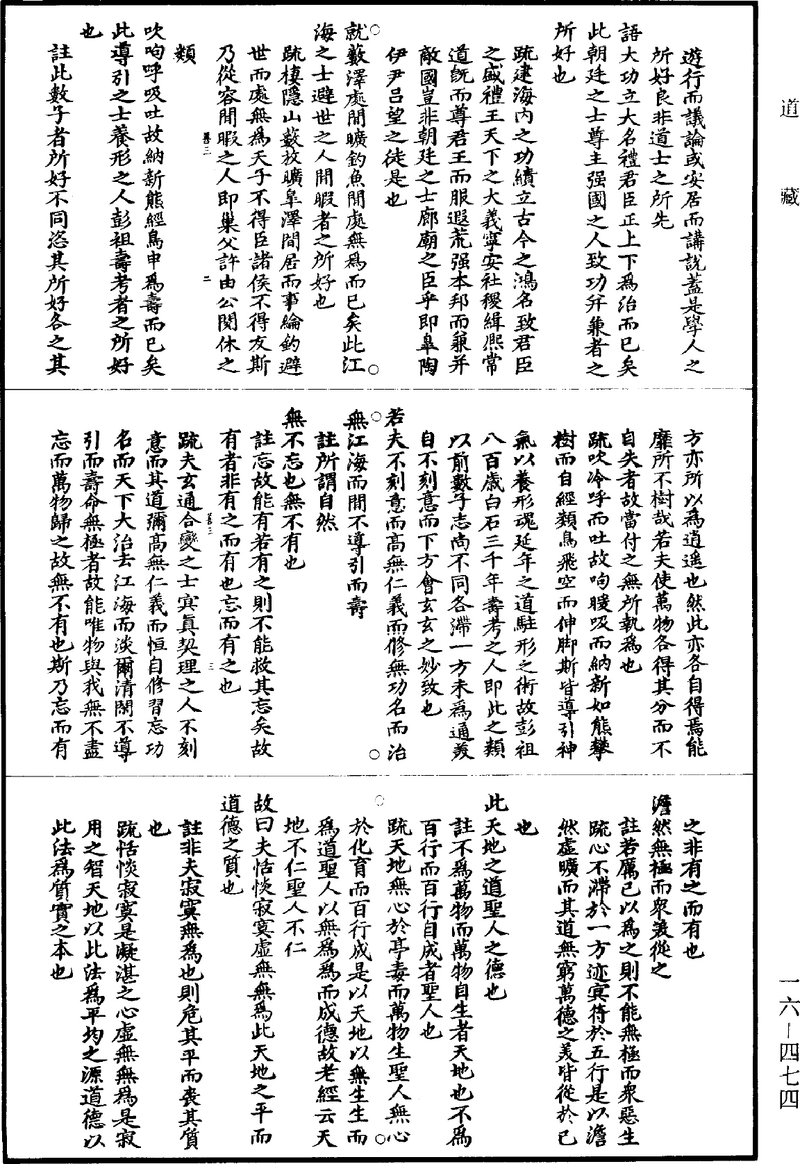 道藏
遊行而議論或安居而講說蓋是學人之
所好良非道士之所先
語大功立大名禮君臣正上下為治而已矣
此朝廷之士尊主强國之人致功并兼者之
所好也
疏建海內之功績立古今之鴻名致君臣
之盛禮主天下之大義寧安社稷緝熈常
道旣而尊君王而服遐荒强本邦而兼并
敵國豈非朝廷之士廊廟之臣乎即皐陶
伊尹呂望之徒是也
就藪澤處閒曠釣魚閒處無為而已矣此江
海之士避世之人閒暇者之所好也
疏棲隱山藪放曠皐澤閒居而事綸釣避
世而處無為天子不得臣諸侯不得友斯
乃從容閒暇之人即巢父許由公閱休之
二
類
吹呴呼吸吐故納新熊經鳥申為壽而已矣
此導引之士養形之人彭祖壽考者之所好
也
註此數子者所好不同恣其所好各之其
方亦所以為逍遥也然此亦各自得焉能
靡所不樹哉若夫使萬物各得其分而不
自失者故當付之無所執為也
疏吹冷呼而吐故呴暖吸而納新如熊攀
樹而自經類鳥飛空而伸脚斯皆導引神
氣以養形魂延年之道駐形之術故彭祖
八百歲白石三千年壽考之人即此之類
以前數子志尚不同各滯一方未為通美
自不刻意而下方會玄玄之妙致也
若夫不刻意而高無仁義而脩無功名而治
無江海而閒不導引而壽
註所謂自然
無不忘也無不有也
註忘故能有若有之則不能救其忘矣故
有者非有之而有也忘而有之也
三
疏夫玄通合變之士冥真契理之人不刻
意而其道彌高無仁義而恒自修習忘功
名而天下大治去江海而淡爾清閒不導
引而壽命無極者故能唯物與我無不盡
忘而萬物歸之故無不有也斯乃忘而有
之非有之而有也
澹然無極而衆美從之
註若厲己以為之則不能無極而衆惡生
疏心不滯於一方迹冥符於五行是以澹
然虚曠而其道無窮萬德之美皆從於己
也
此天地之道聖人之德也
註不為萬物而萬物自生者天地也不為
百行而百行自成者聖人也
疏天地無心於亭毒而萬物生聖人無心
於化育而百行成是以天地以無生生而
為道聖人以無為為而成德故老經云天
地不仁聖人不仁
故曰夫恬惔寂寞虚無無為此天地之平而
道德之質也
註非夫寂寞無為也則危其平而喪其質
也
疏恬惔寂寞是凝湛之心虚無無為是寂
用之智天地以此法為平均之源道德以
此法為質實之本也
一六－四七四